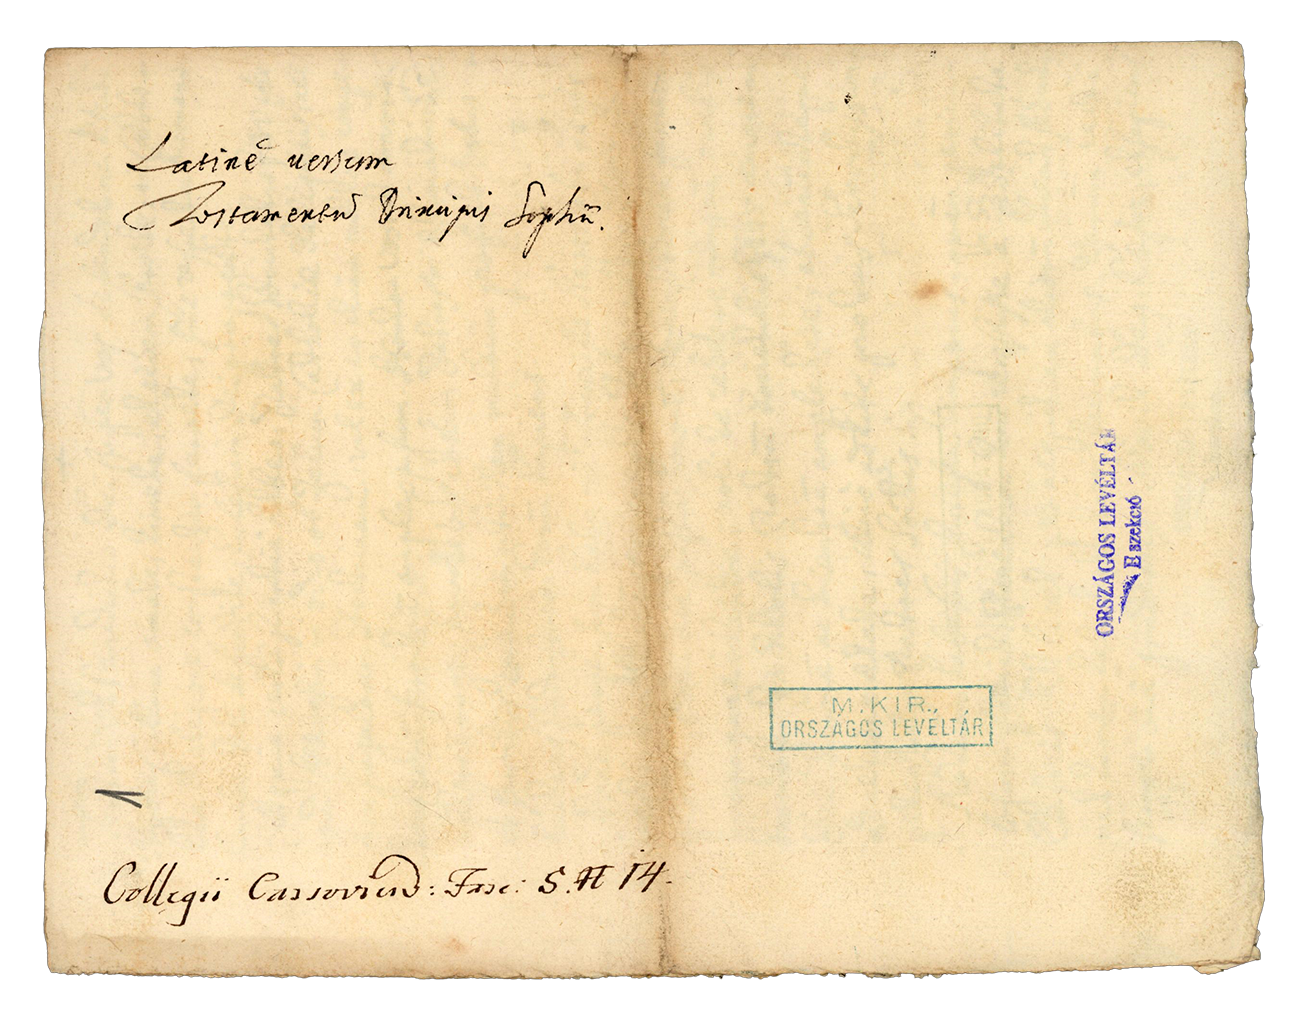 Latinè versum
Testamentū Principis Sophiæ.
Collegii Cassovien̄: Fasc: 5. # 14.
M. KIR.
ORSZÁGOS LEVÉLTÁR
ORSZÁGOS LEVÉLTÁR
E szekció